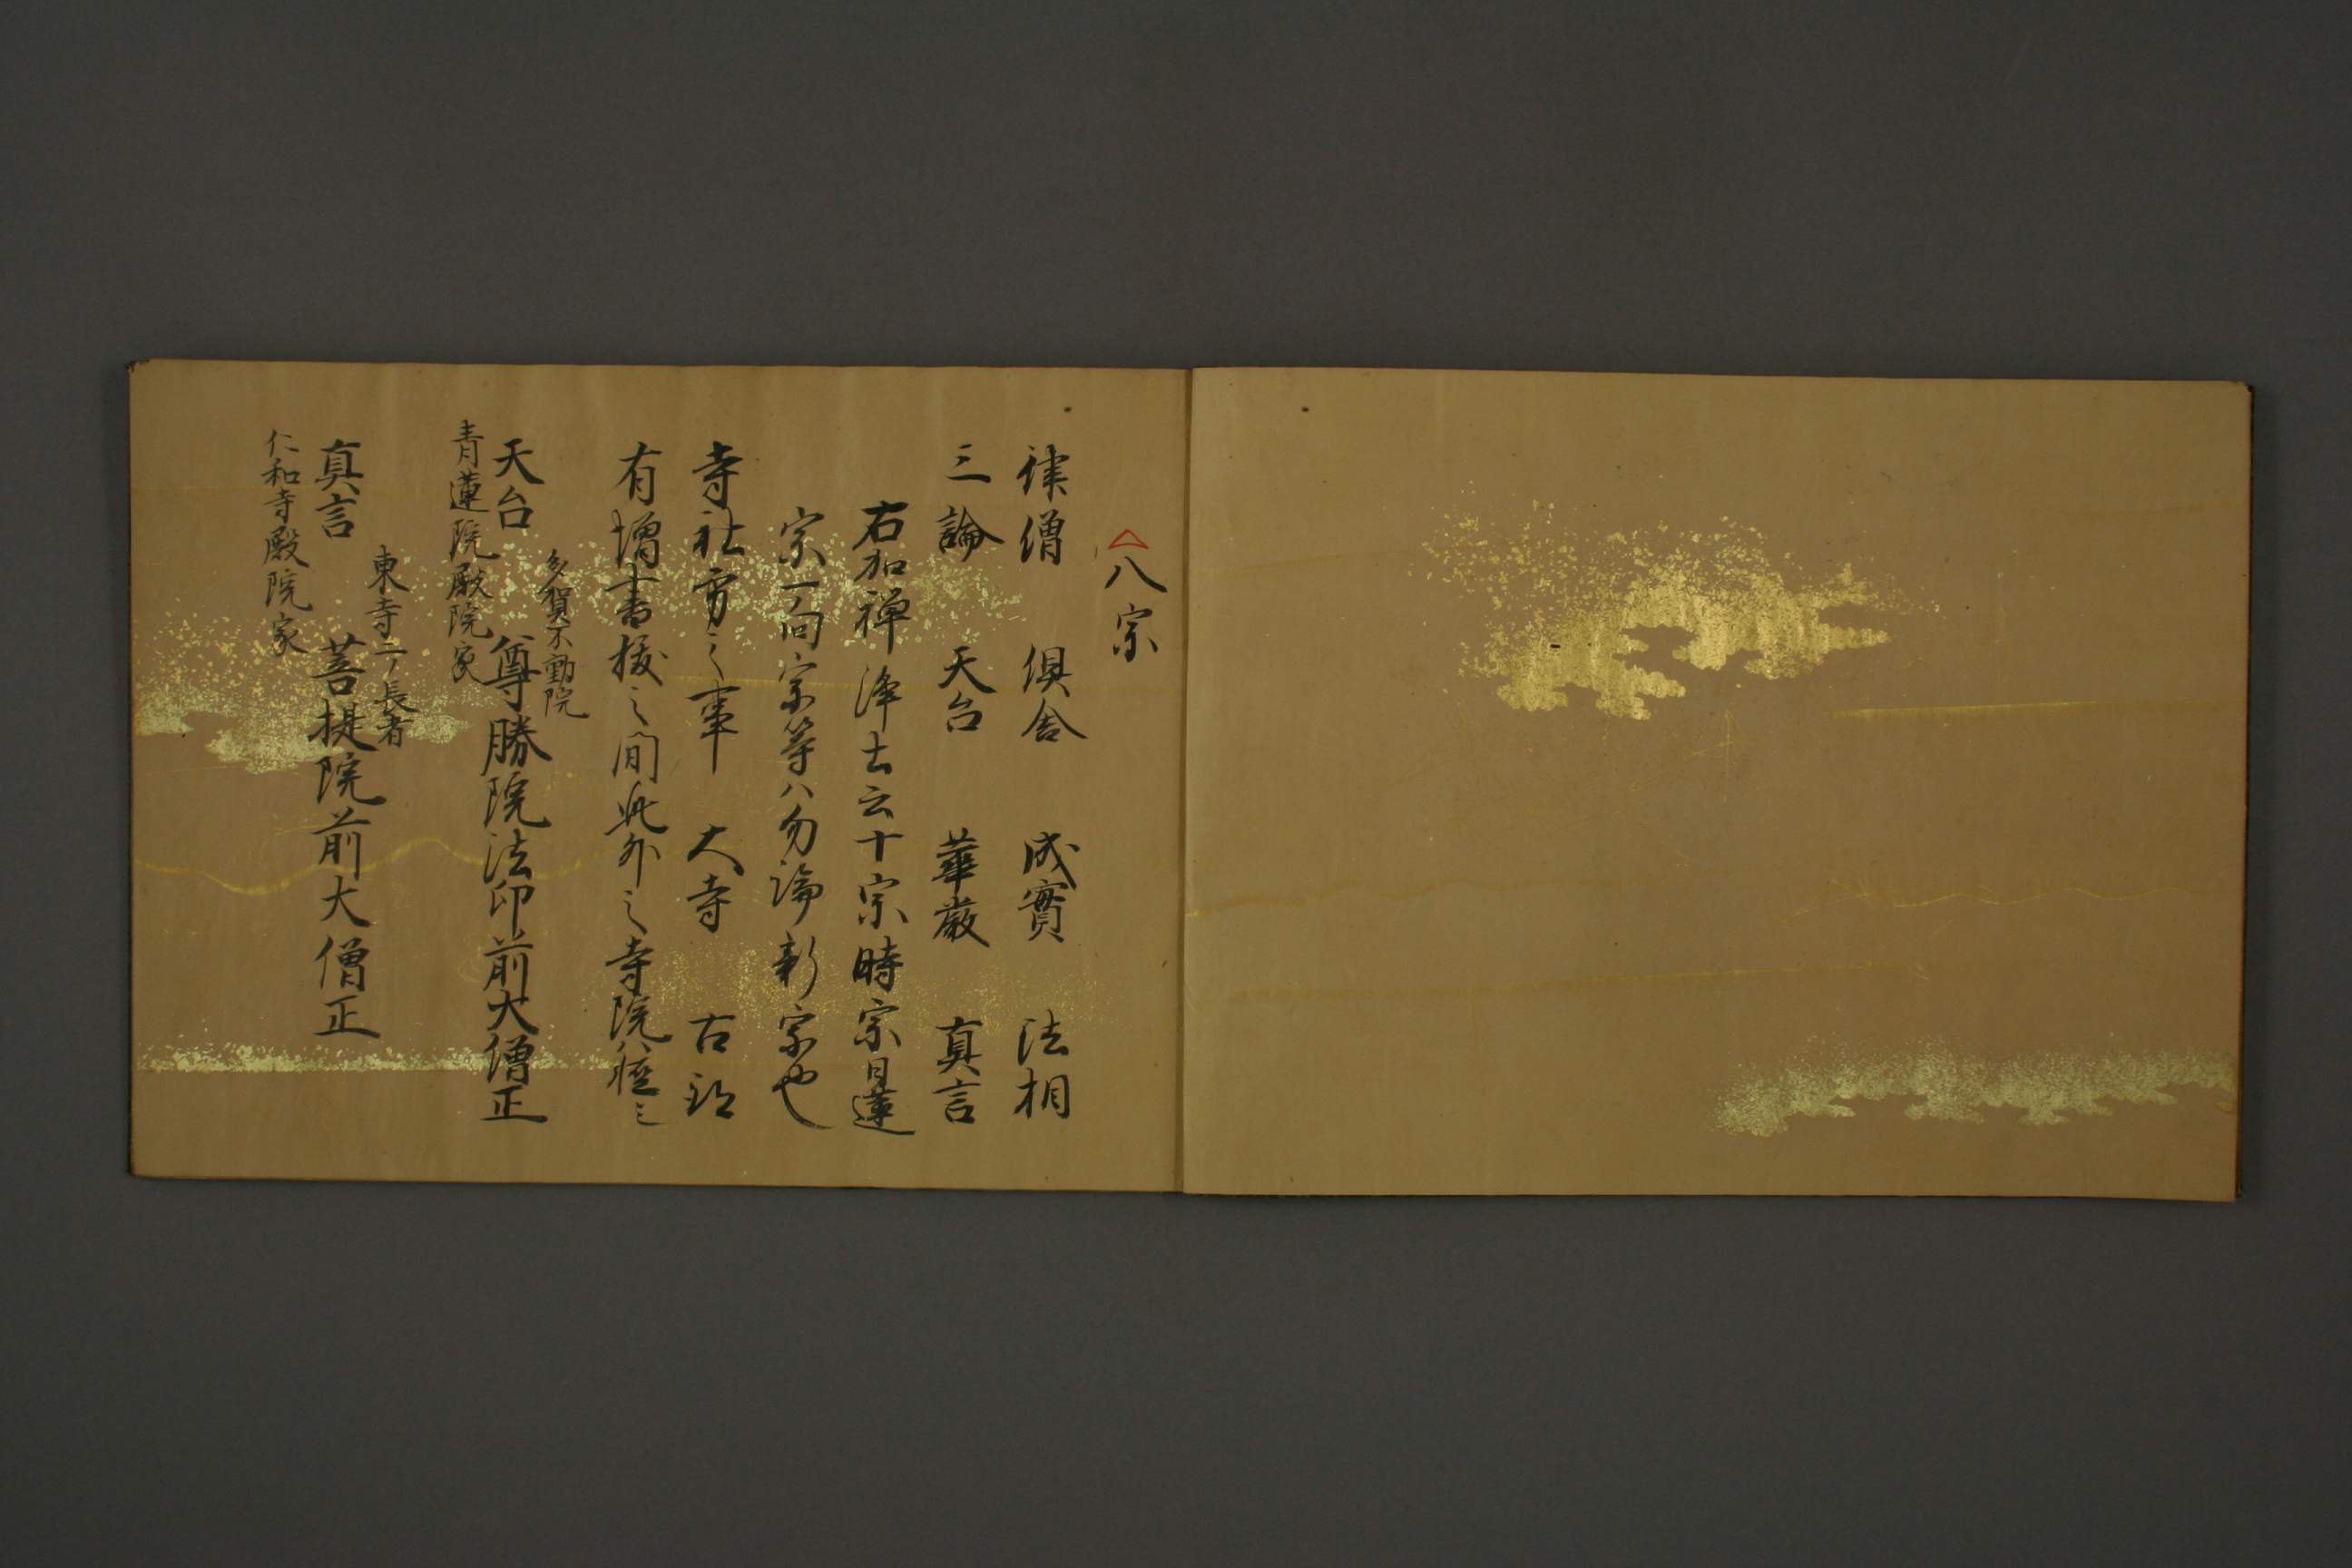 八宗
律僧 倶舎 成實 法相
三論 天台 華厳 真言
右加禅浄土云十宗時宗日蓮
宗一向宗等ハ勿論新宗也
寺社方之事 大寺 古跡
有増書抜之間此外之寺院ハ
多賀不動院
天台 尊勝院法印前大僧正
青蓮院殿院家
東寺二ノ長者
真言 菩提院前大僧正
仁和寺殿院家